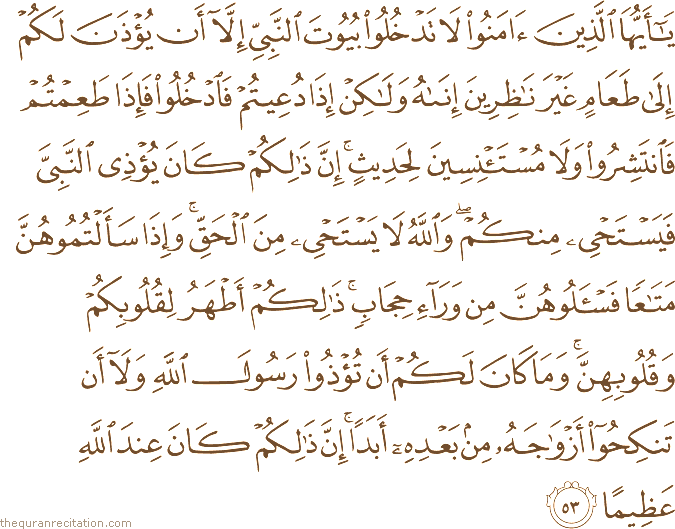 يَـٰٓأَيُّهَا ٱلَّذِينَ ءَامَنُوا۟ لَا تَدۡخُلُوا۟ بُيُوتَ ٱلنَّبِيِّ إِلَّآ أَن يُؤۡذَنَ لَكُمۡ
إِلَىٰ طَعَامٍ غَيۡرَ نَـٰظِرِينَ إِنَىٰهُ وَلَـٰكِنۡ إِذَا دُعِيتُمۡ فَٱدۡخُلُوا۟ فَإِذَا طَعِمۡتُمۡ
فَٱنتَشِرُوا۟ وَلَا مُسۡتَـٔۡنِسِينَ لِحَدِيثٍۚ إِنَّ ذَٰلِكُمۡ كَانَ يُؤۡذِى ٱلنَّبِيَّ
فَيَسۡتَحۡىِۦ مِنكُمۡۖ وَٱللَّهُ لَا يَسۡتَحۡىِۦ مِنَ ٱلۡحَقِّۚ وَإِذَا سَأَلۡتُمُوهُنَّ
مَتَـٰعًا فَسۡـَٔلُوهُنَّ مِن وَرَآءِ حِجَابٍۚ ذَٰلِكُمۡ أَطۡهَرُ لِقُلُوبِكُمۡ
وَقُلُوبِهِنَّۚ وَمَا كَانَ لَكُمۡ أَن تُؤۡذُوا۟ رَسُولَ ٱللَّهِ وَلَآ أَن
تَنكِحُوٓا۟ أَزۡوَٰجَهُۥ مِنۢ بَعۡدِهِۦٓ أَبَدًاۚ إِنَّ ذَٰلِكُمۡ كَانَ عِندَ ٱللَّهِ
عَظِيمًا ٥٣
thequranrecitation.com